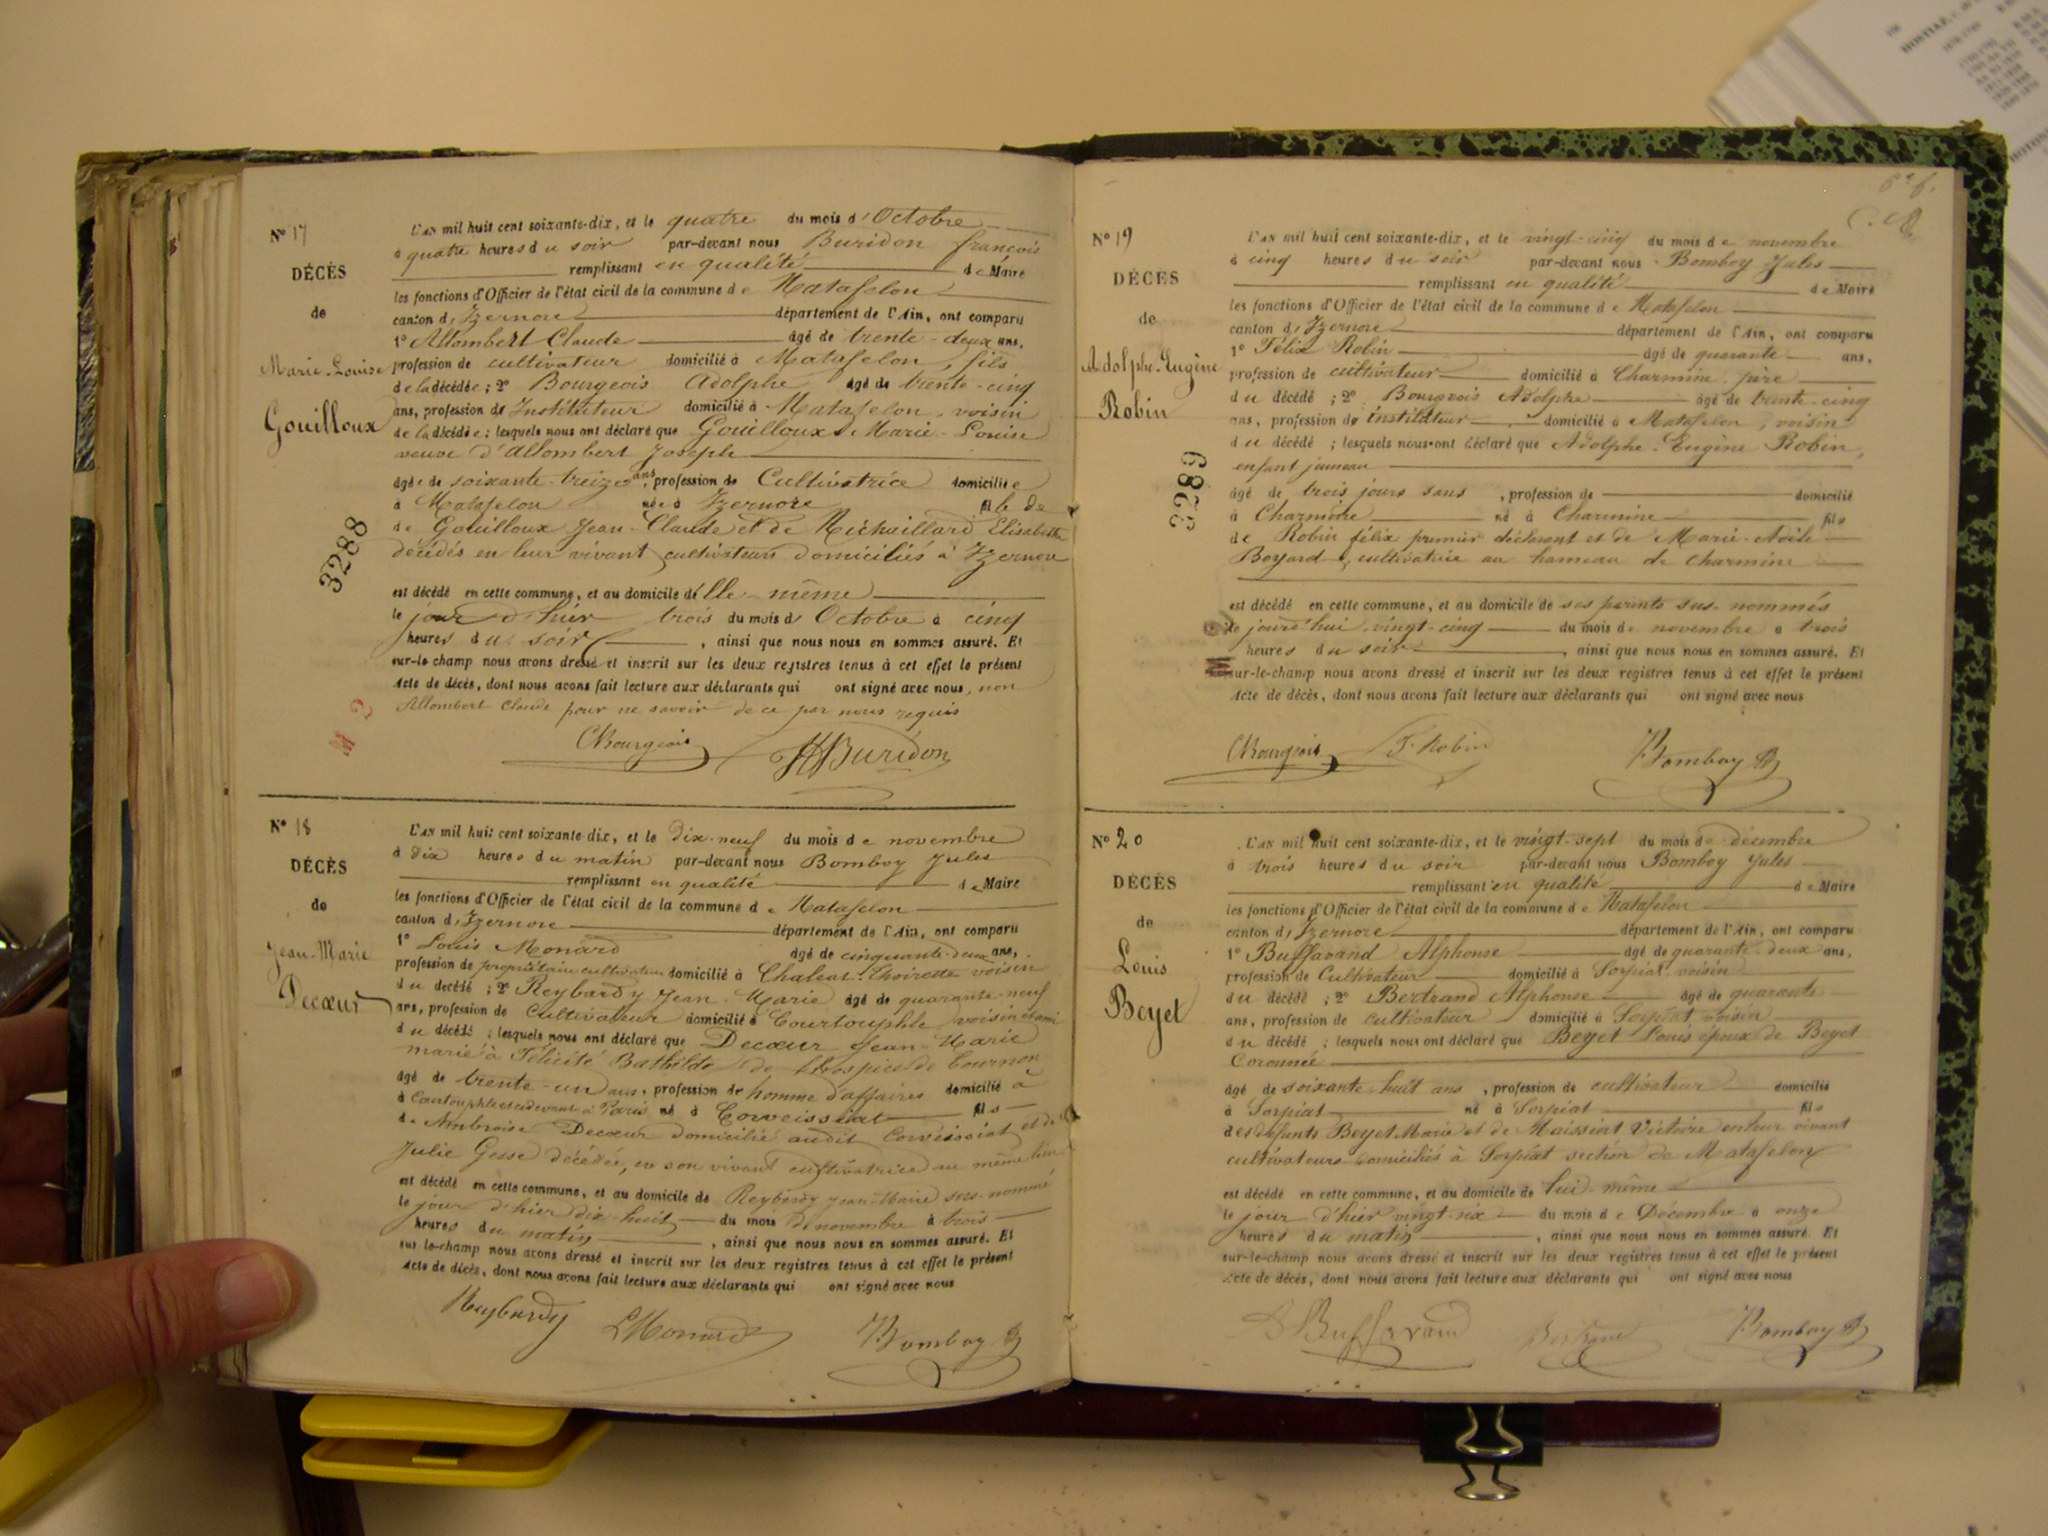 N° 17
DÉCÈS
de
Marie-Louise
Gouilloux
3288
L'AN mil huit cent soixante-dix, et le quatre du mois d'Octobre
à quatre heures du soir par-devant nous Buridon françois
remplissant en qualité de Maire
les fonctions d'Officier de l'état civil de la commune de Matafelon
canton d'Izernore département de l'Ain, ont comparu
1° Allombert Claude âgé de trente-deux ans,
profession de cultivateur domicilié à Matafelon, fils
de la décédée ; 2° Bourgeois Adolphe âgé de trente-cinq
ans, profession d'Instituteur domicilié à Matafelon, voisin
de la décédée ; lesquels nous ont déclaré que Gouilloux Marie-Louise
veuve d'Allombert Joseph
âgée de soixante-treize ans, profession de Cultivatrice domiciliée
à Matafelon née à Izernore fille de
de Gouilloux Jean-Claude et de Michaillard Elisabeth
décédés en leur vivant cultivateurs domiciliés à Izernore
est décédé en cette commune, et au domicile d'elle-même
le jour d'hier trois du mois d'Octobre à cinq
heures du soir, ainsi que nous nous en sommes assuré. Et
sur-le champ nous avons dressé et inscrit sur les deux registres tenus à cet effet le présent
Acte de décès, dont nous avons fait lecture aux déclarants qui ont signé avec nous, non
Allombert Claude pour ne savoir de ce par nous requis
Bourgeois Buridon
N° 18
DÉCÈS
de
Jean-Marie
Decœur
L'AN mil huit cent soixante-dix, et le dix-neuf du mois de novembre
à dix heures du matin par-devant nous Bomboy Jules
remplissant en qualité de Maire
les fonctions d'Officier de l'état civil de la commune de Matafelon
canton d'Izernore département de l'Ain, ont comparu
1° Louis Monard âgé de cinquante-deux ans,
profession de propriétaire cultivateur domicilié à Chaleat Thoirette voisin
du décédé ; 2° Reybardy Jean-Marie âgé de quarante-neuf
ans, profession de Cultivateur domicilié à Courtouphle, voisin et ami
du décédé ; lesquels nous ont déclaré que Decœur Jean-Marie
marié à Félicité Bathilde de l'hospice de Tournon
âgé de trente-un ans, profession de homme d'affaires domicilié à
à Courtouphle et ci devant à Paris né à Corveissiat fils
de Ambroise Decœur domicilié audit Corveissiat et de
Julie Gesse décédée, en son vivant cultivatrice au même lieu
est décédé en cette commune, et au domicile de Reybardy Jean-Marie sus-nommé
le jour d'hier dix-huit du mois de novembre à trois
heures du matin, ainsi que nous nous en sommes assuré. Et
sur le-champ nous avons dressé et inscrit sur les deux registres tenus à cet effet le présent
Acte de décès, dont nous avons fait lecture aux déclarants qui ont signé avec nous
Reybardy LMonard Bomboy
N° 19
DÉCÈS
de
Adolphe-Eugène
Robin
3289
L'AN mil huit cent soixante-dix, et le vingt-cinq du mois de novembre
à cinq heures du soir par-devant nous Bomboy Jules
remplissant en qualité de Maire
les fonctions d'Officier de l'état civil de la commune de Matafelon
canton d'Izernore département de l'Ain, ont comparu
1° Félix Robin âgé de quarante ans,
profession de cultivateur domicilié à Charmine, père
du décédé ; 2° Bourgeois Adolphe âgé de trente-cinq
ans, profession d'instituteur domicilié à Matafelon, voisin
du décédé ; lesquels nous ont déclaré que Adolphe-Eugène Robin,
enfant jumeau
âgé de trois jours sans, profession de domicilié
à Charmine né à Charmine fils
de Robin félix premier déclarant et de Marie-Adèle
Boyard, cultivatrice au hameau de Charmine
est décédé en cette commune, et au domicile de ses parents sus-nommés
le jourd'hui vingt-cinq du mois de novembre à trois
heures du soir, ainsi que nous nous en sommes assuré. Et
sur-le-champ nous avons dressé et inscrit sur les deux registres tenus à cet effet le présent
Acte de décès, dont nous avons fait lecture aux déclarants qui ont signé avec nous
Bourgeois F. Robin Bomboy
N° 20
DÉCÈS
de
Louis
Beyet
L'AN mil huit cent soixante-dix, et le vingt-sept du mois de décembre
à trois heures du soir par-devant nous Bomboy Jules
remplissant en qualité de Maire
les fonctions d'Officier de l'état civil de la commune de Matafelon
canton d'Izernore département de l'Ain, ont comparu
1° Buffavand Alphonse âgé de quarante-deux ans,
profession de Cultivateur domicilié à Sorpiat voisin
du décédé ; 2° Bertrand Alphonse âgé de quarante
ans, profession de cultivateur domicilié à Sorpiat voisin
du décédé ; lesquels nous ont déclaré que Beyet Louis époux de Beyet
Coronnée
âgé de soixante-huit ans, profession de cultivateur domicilié
à Sorpiat né à Sorpiat fils
des défunts Beyet Marie et de Maissiat Victoire en leur vivant
cultivateurs domiciliés à Sorpiat section de Matafelon
est décédé en cette commune, et au domicile de lui-même
le jour d'hier vingt-six du mois de Décembre à onze
heures du matin, ainsi que nous nous en sommes assuré. Et
sur-le-champ nous avons dressé et inscrit sur les deux registres tenus à cet effet le présent
Acte de décès, dont nous avons fait lecture aux déclarants qui ont signé avec nous
Buffavand Bertrand Bomboy